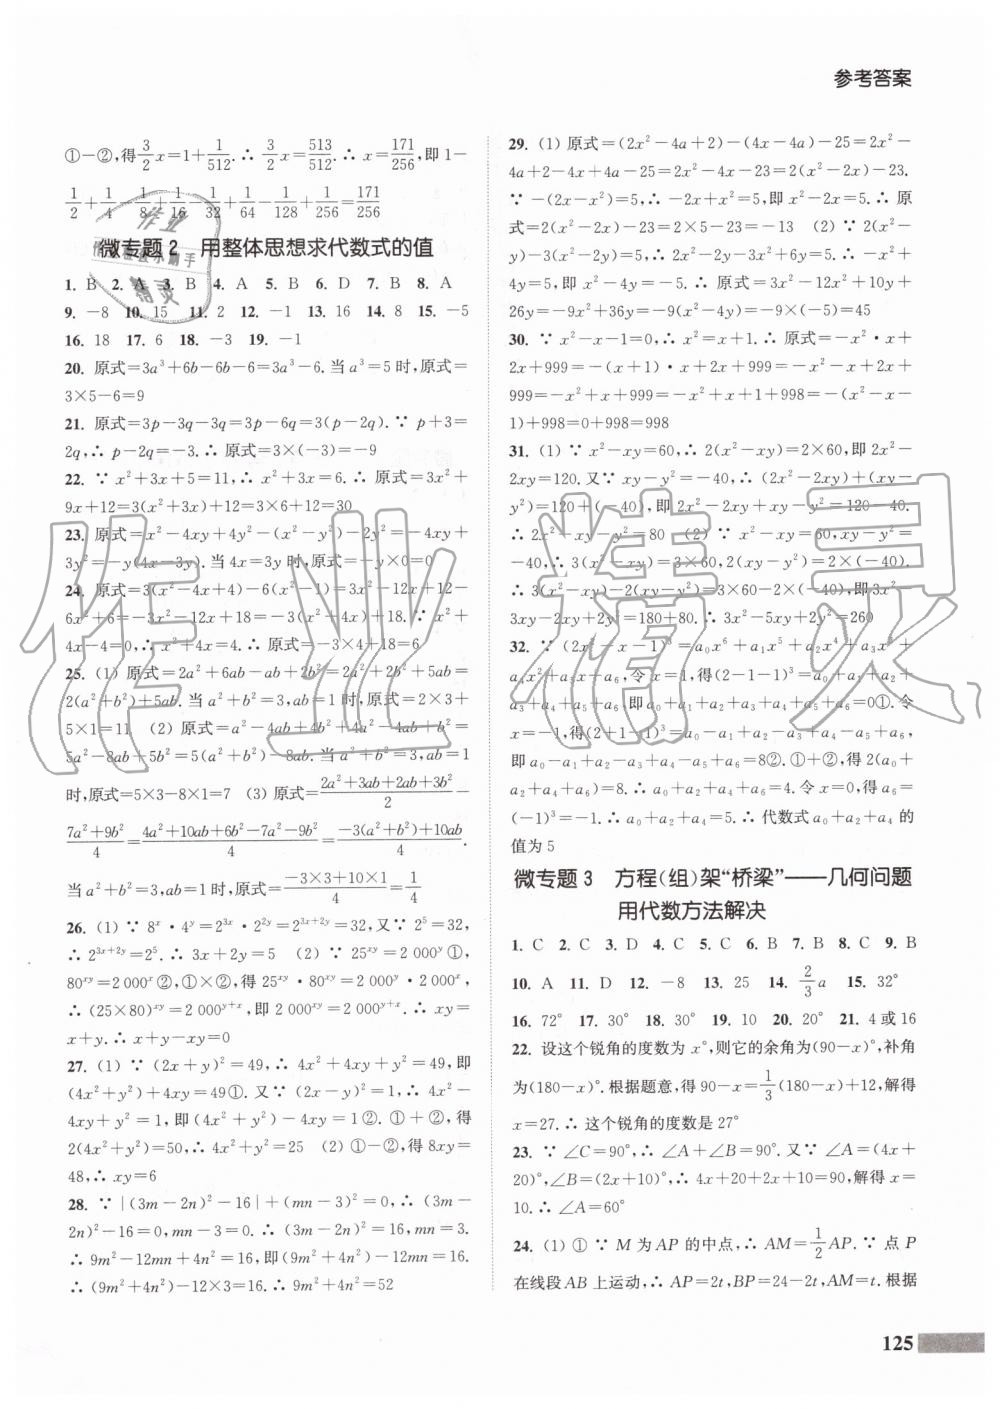 参考答案
①－②,得3/2 x=1+1/512.∴ 3/2 x=513/512.∴ x=171/256,即 1－
1/2+1/4－1/8+1/16－1/32+1/64－1/128+1/256=171/256
微专题 2 用整体思想求代数式的值
1. B 2. A 3. B 4. A 5. B 6. D 7. B 8. A
9. －8 10. 15 11. 2 12. －1 13. 16 14. 8 15. －5
16. 18 17. 6 18. －3 19. －1
20. 原式=3a³+6b－6b－6=3a³－6.当 a³=5 时,原式=
3×5－6=9
21. 原式=3p－3q－3q=3(p－2q).∵ p+3=
2q,∴ p－2q=－3.∴ 原式=3×(－3)=－9
22. ∵ x²+3x+5=11,∴ x²+3x=6.∴ 原式=3x²+
9x+12=3(x²+3x)+12=3×6+12=30
23. 原式=x²－4xy+4y²－(x²－y²)－2y²=－4xy+
3y²=－y(4x－3y).当 4x=3y 时,原式=－y×0=0
24. 原式=3(x²－4x+4)－6(x²－1)=3x²－12x+12－
6x²+6=－3x²－12x+18=－3(x²+4x)+18.∵ x²+
4x－4=0,∴ x²+4x=4.∴ 原式=－3×4+18=6
25. (1) 原式=2a²+6ab－ab+2b²=2a²+2b²+5ab=
2(a²+b²)+5ab.当 a²+b²=3,ab=1 时,原式=2×3+
5×1=11 (2) 原式=a²－4ab+4b²+4a²－4ab+b²=
5a²－8ab+5b²=5(a²+b²)－8ab.当 a²+b²=3,ab=1
时,原式=5×3－8×1=7 (3) 原式=(2a²+3ab+2ab+3b²)/2－
(7a²+9b²)/4=(4a²+10ab+6b²－7a²－9b²)/4=(－3(a²+b²)+10ab)/4.
当 a²+b²=3,ab=1 时,原式=(－3×3+10×1)/4=1/4
26. (1) ∵ 8ˣ·4ʸ=2³ˣ·2²ʸ=2³ˣ⁺²ʸ=32,又∵ 2⁵=32,
∴ 2³ˣ⁺²ʸ=2⁵.∴ 3x+2y=5 (2) ∵ 25ˣʸ=2 000ʸ①,
80ˣʸ=2 000ˣ②,①×②,得 25ˣʸ·80ˣʸ=2 000ʸ·2 000ˣ,
∴ (25×80)ˣʸ=2 000ʸ⁺ˣ,即 2 000ˣʸ=2 000ʸ⁺ˣ.∴ xy=
x+y.∴ x+y－xy=0
27. (1) ∵ (2x+y)²=49,∴ 4x²+4xy+y²=49,即
(4x²+y²)+4xy=49①.又∵ (2x－y)²=1,∴ 4x²－
4xy+y²=1,即(4x²+y²)－4xy=1②.①+②,得
2(4x²+y²)=50,∴ 4x²+y²=25 (2) ①－②,得 8xy=
48,∴ xy=6
28. ∵ |(3m－2n)²－16|+(mn－3)²=0,∴ (3m－
2n)²－16=0,mn－3=0.∴ (3m－2n)²=16,mn=3.
∴ 9m²－12mn+4n²=16,即(9m²+4n²)－12mn=16.
∴ (9m²+4n²)－12×3=16.∴ 9m²+4n²=52
29. (1) 原式=(2x²－4a+2)－(4x－4a)－25=2x²－
4a+2－4x+4a－25=2x²－4x－23=2(x²－2x)－23.
∵ －(2x－x²)=5,∴ －2x+x²=5,即 x²－2x=5.∴ 原
式=2(x²－2x)－23=2×5－23=－13 (2) ∵ (x－2)²+
9－(x－3)(x+3)=2(x²－2y),∴ x²－4y=－5.∴ －x²+
4y=5,即 x²－4y=－5.∴ 原式=－10x²+12x²+10y+
26y=－9x²+36y=－9(x²－4y)=－9×(－5)=45
30. ∵ x²－x－1=0,∴ x²=x+1.∴ 原式=－x²·x+
2x+999=－(x+1)·x+2x+999=－x²－x+2x+
999=－x²+x+999=－x²+x+1+998=－(x²－x－
1)+998=0+998=998
31. (1) ∵ x²－xy=60,∴ 2(x²－xy)=2×60,即 2x²－
2xy=120.又∵ xy－y²=－40,∴ (2x²－2xy)+(xy－
y²)=120+(－40),即 2x²－2xy+xy－y²=120－40.
∴ 2x²－xy－y²=80 (2) ∵ x²－xy=60,xy－y²=
－40,∴ 3(x²－xy)=3×60,2(xy－y²)=2×(－40).
∴ 3(x²－xy)－2(xy－y²)=3×60－2×(－40),即 3x²－
3xy－2xy+2y²=180+80.∴ 3x²－5xy+2y²=260
32. ∵ (2x²－x－1)³=a₀x⁶+a₁x⁵+a₂x⁴+a₃x³+
a₄x²+a₅x+a₆,令 x=1,得(2－1－1)³=a₀+a₁+a₂+
a₃+a₄+a₅+a₆,即 a₀+a₁+a₂+a₃+a₄+a₅+a₆=0①.令
x=－1,得(2+1－1)³=a₀－a₁+a₂－a₃+a₄－a₅+a₆,
即 a₀－a₁+a₂－a₃+a₄－a₅+a₆=8②.①+②,得 2(a₀+
a₂+a₄+a₆)=8.∴ a₀+a₂+a₄+a₆=4.令 x=0,得 a₆=
(－1)³=－1.∴ a₀+a₂+a₄=5.∴ 代数式 a₀+a₂+a₄ 的
值为 5
微专题 3 方程(组)架“桥梁”——几何问题
用代数方法解决
1. C 2. C 3. D 4. C 5. C 6. B 7. B 8. C 9. B
10. A 11. D 12. －8 13. 25 14. 2/3 a 15. 32°
16. 72° 17. 30° 18. 30° 19. 10 20. 20° 21. 4 或 16
22. 设这个锐角的度数为 x°,则它的余角为(90－x)°,补角
为(180－x)°.根据题意,得 90－x=1/3(180－x)+12,解得
x=27.∴ 这个锐角的度数是 27°
23. ∵ ∠C=90°,∴ ∠A+∠B=90°.又∵ ∠A=(4x+
20)°,∠B=(2x+10)°,∴ 4x+20+2x+10=90,解得 x=
10.∴ ∠A=60°
24. (1) ① ∵ M 为 AP 的中点,∴ AM=1/2 AP.∵ 点 P
在线段 AB 上运动,∴ AP=2t,BP=24－2t,AM=t.根据
125
作业精灵